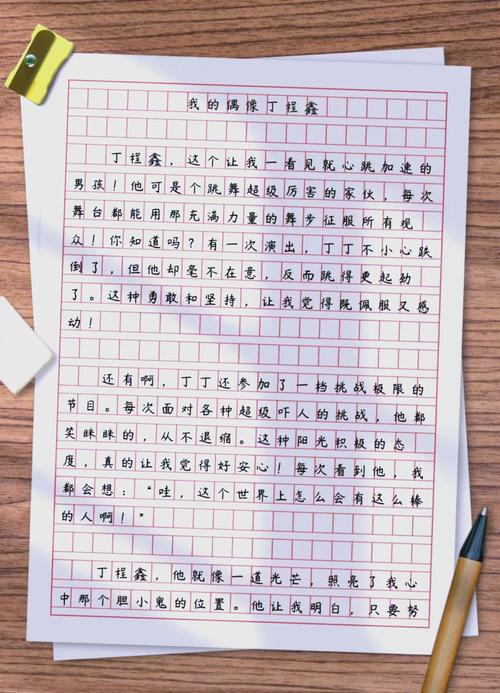 我的偶像丁程鑫
丁程鑫，这个让我一看见就心跳加速的
男孩！他可是个跳舞超级厉害的家伙，每次
舞台都能用那充满力量的舞步征服所有观
众！你知道吗？有一次演出，丁丁不小心跌
倒了，但他却毫不在意，反而跳得更起劲
了。这种勇敢和坚持，让我觉得既佩服又感
动！
还有啊，丁丁还参加了一档挑战极限的
节目。每次面对各种超级吓人的挑战，他都
笑眯眯的，从不退缩。这种阳光积极的态
度，真的让我觉得好安心！每次看到他，我
都会想：“哇，这个世界上怎么会有这么棒
的人啊！”
丁程鑫，他就像一道光芒，照亮了我心
中那个胆小鬼的位置。他让我明白，只要努